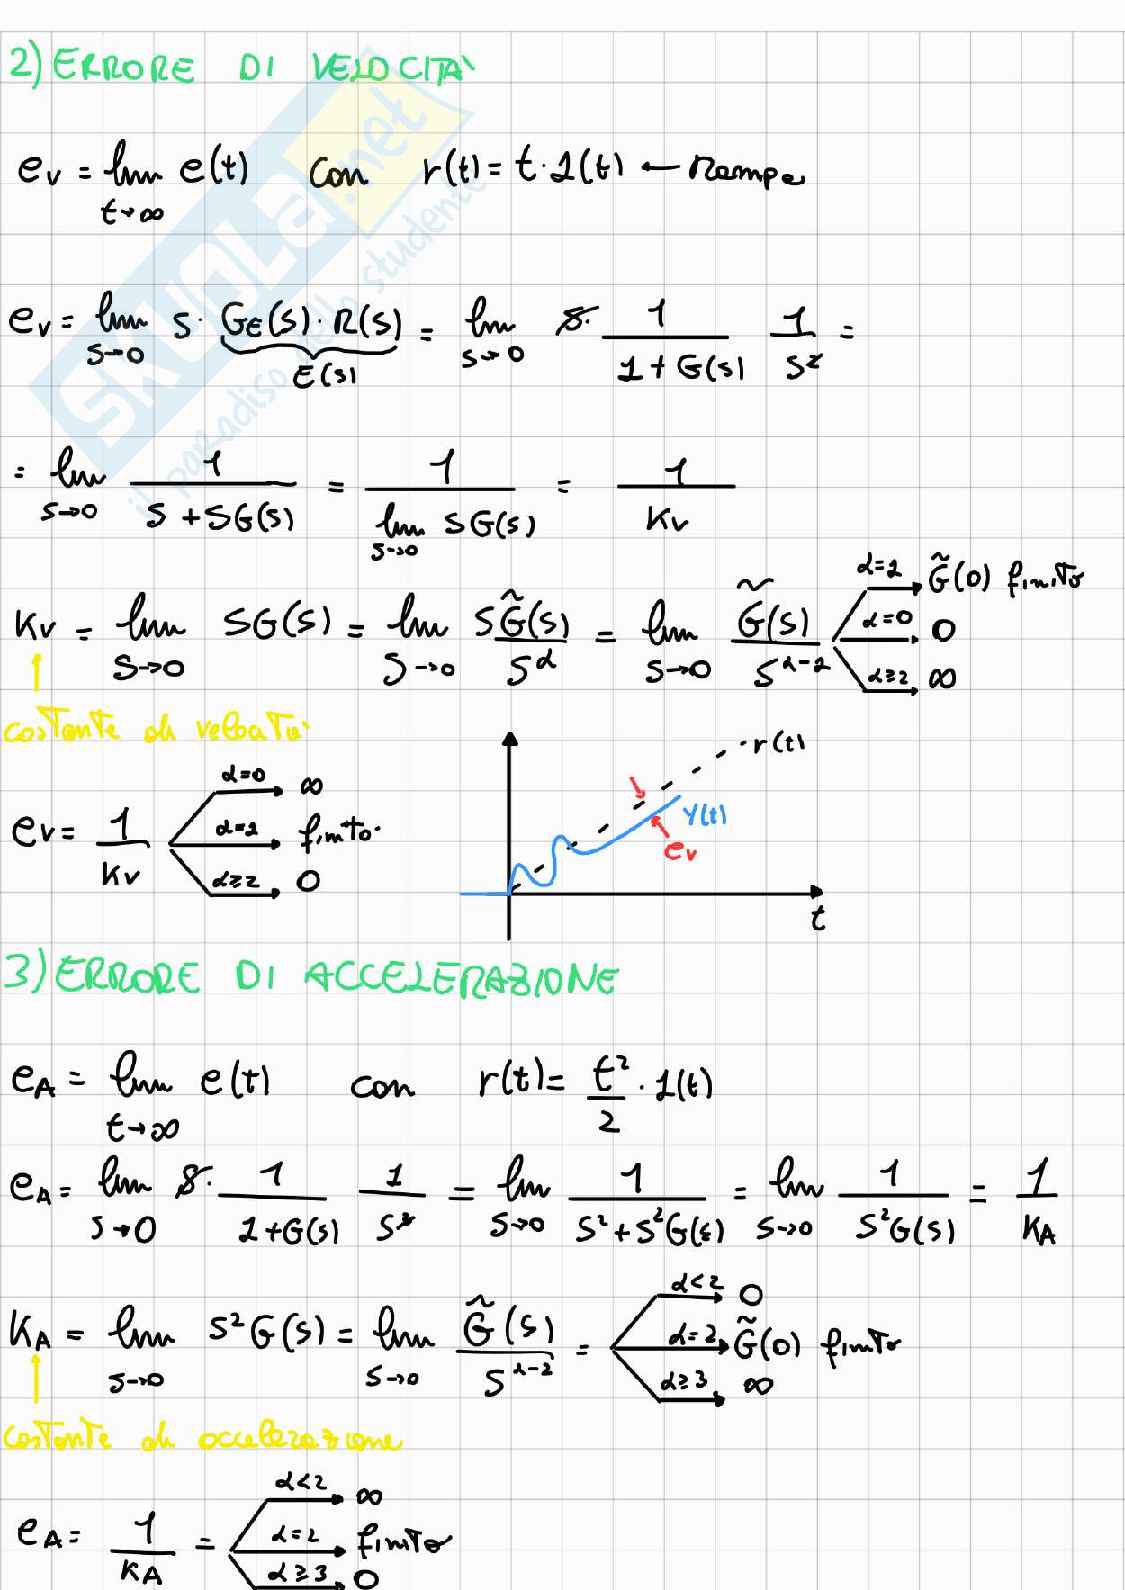 2) ERRORE DI VELOCITÀ
e_v = lim_{t→∞} e(t) con r(t) = t·1(t) ← Rampa
e_v = lim_{s→0} s·G_E(s)·R(s) = lim_{s→0} s· 1/(1+G(s)) 1/s² =
E(s)
= lim_{s→0} 1/(s+sG(s)) = 1/(lim_{s→0} sG(s)) = 1/K_v
K_v = lim_{s→0} sG(s) = lim_{s→0} sG̃(s)/s^α = lim_{s→0} G̃(s)/s^{α-1}
α=1 → G̃(0) finito
α=0 → 0
α≥2 → ∞
costante di velocità
e_v = 1/K_v
α=0 → ∞
α=1 → finito
α≥2 → 0
r(t)
y(t)
e_v
t
3) ERRORE DI ACCELERAZIONE
e_A = lim_{t→∞} e(t) con r(t) = t²/2 · 1(t)
e_A = lim_{s→0} s· 1/(1+G(s)) 1/s³ = lim_{s→0} 1/(s²+s²G(s)) = lim_{s→0} 1/(s²G(s)) = 1/K_A
K_A = lim_{s→0} s²G(s) = lim_{s→0} G̃(s)/s^{α-2} =
α<2 → 0
α=2 → G̃(0) finito
α≥3 → ∞
costante di accelerazione
e_A = 1/K_A =
α<2 → ∞
α=2 → finito
α≥3 → 0
SKUOLA.net
il paradiso dello studente